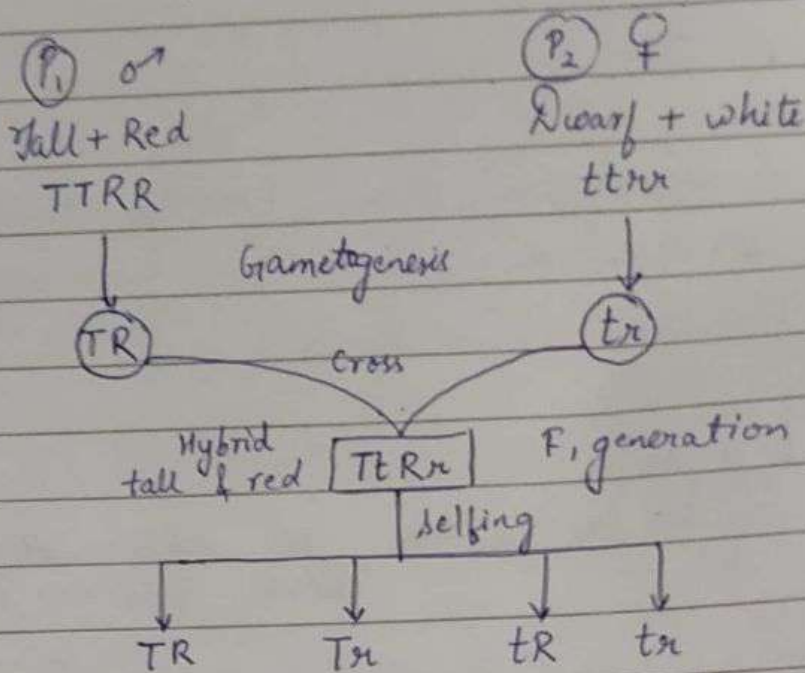 P₁ ♂ P₂ ♀
Tall + Red Dwarf + white
TTRR ttrr
Gametogenesis
TR tr
cross
Hybrid
tall & red TtRr F₁ generation
selfing
TR Tr tR tr